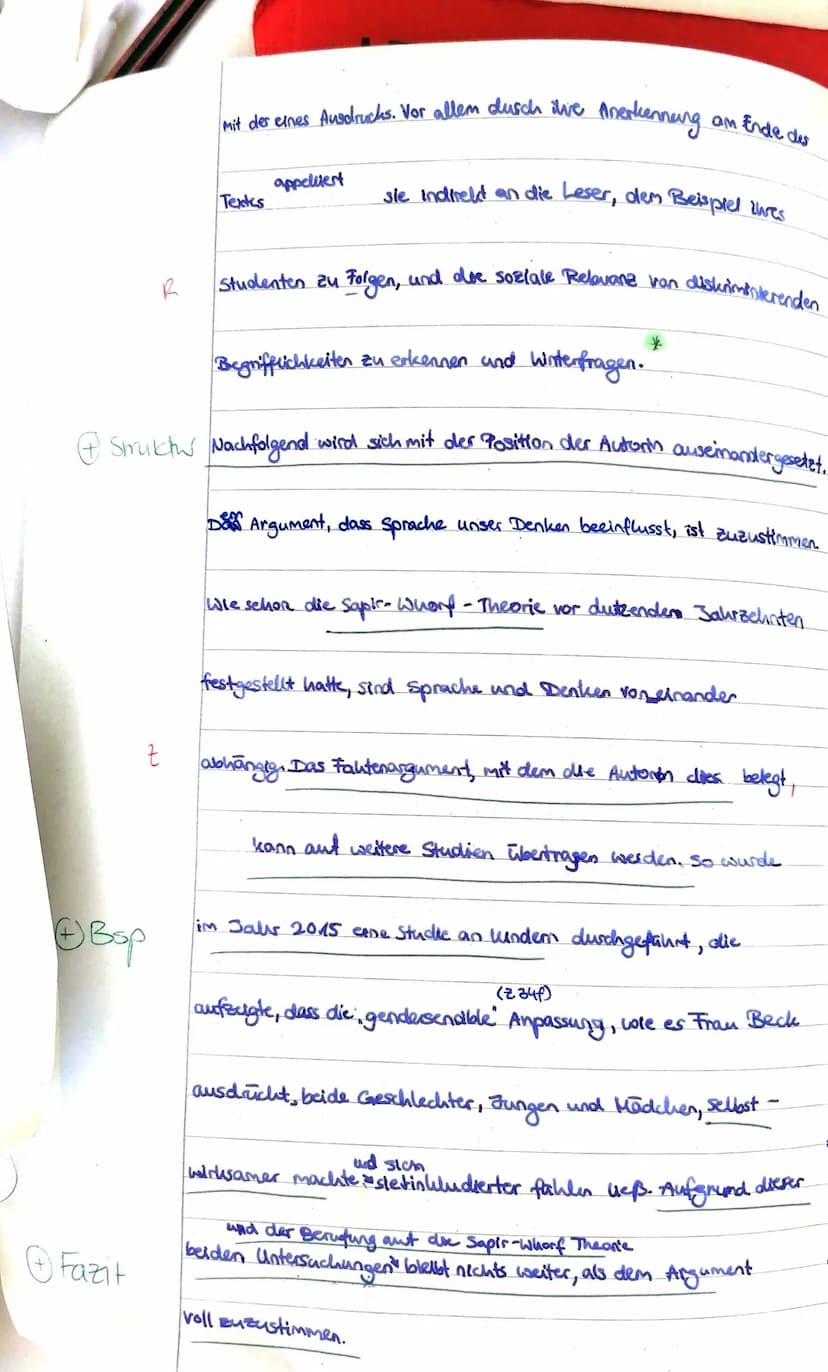 mit der eines Ausdrucks. Vor allem durch ihre Anerkennung am Ende des
appeliert
Textes sie indirekt an die Leser, dem Beispiel ihres
R Studenten zu Folgen, und die soziale Relevanz von diskriminierenden
Begrifflichkeiten zu erkennen und hinterfragen. *
+ Struktur Nachfolgend wird sich mit der Position der Autorin auseinandergesetzt.
Argument, dass Sprache unser Denken beeinflusst, ist zuzustimmen.
Wie schon die Sapir-Whorf-Theorie vor dutzenden Jahrzehnten
festgestellt hatte, sind Sprache und Denken voneinander
Z abhängig. Das Faktenargument, mit dem die Autorin dies belegt,
kann auf weitere Studien übertragen werden. So wurde
+ Bsp im Jahr 2015 eine Studie an Kindern durchgeführt, die
(Z 34f)
aufzeigte, dass die "gendersensible" Anpassung, wie es Frau Beck
ausdrückt, beide Geschlechter, Jungen und Mädchen, selbst-
und sich
wirksamer machte inkludierter fühlen ließ. Aufgrund dieser
und der Berufung auf die Sapir-Whorf Theorie
+ Fazit beiden Untersuchungen bleibt nichts weiter, als dem Argument
voll zuzustimmen.